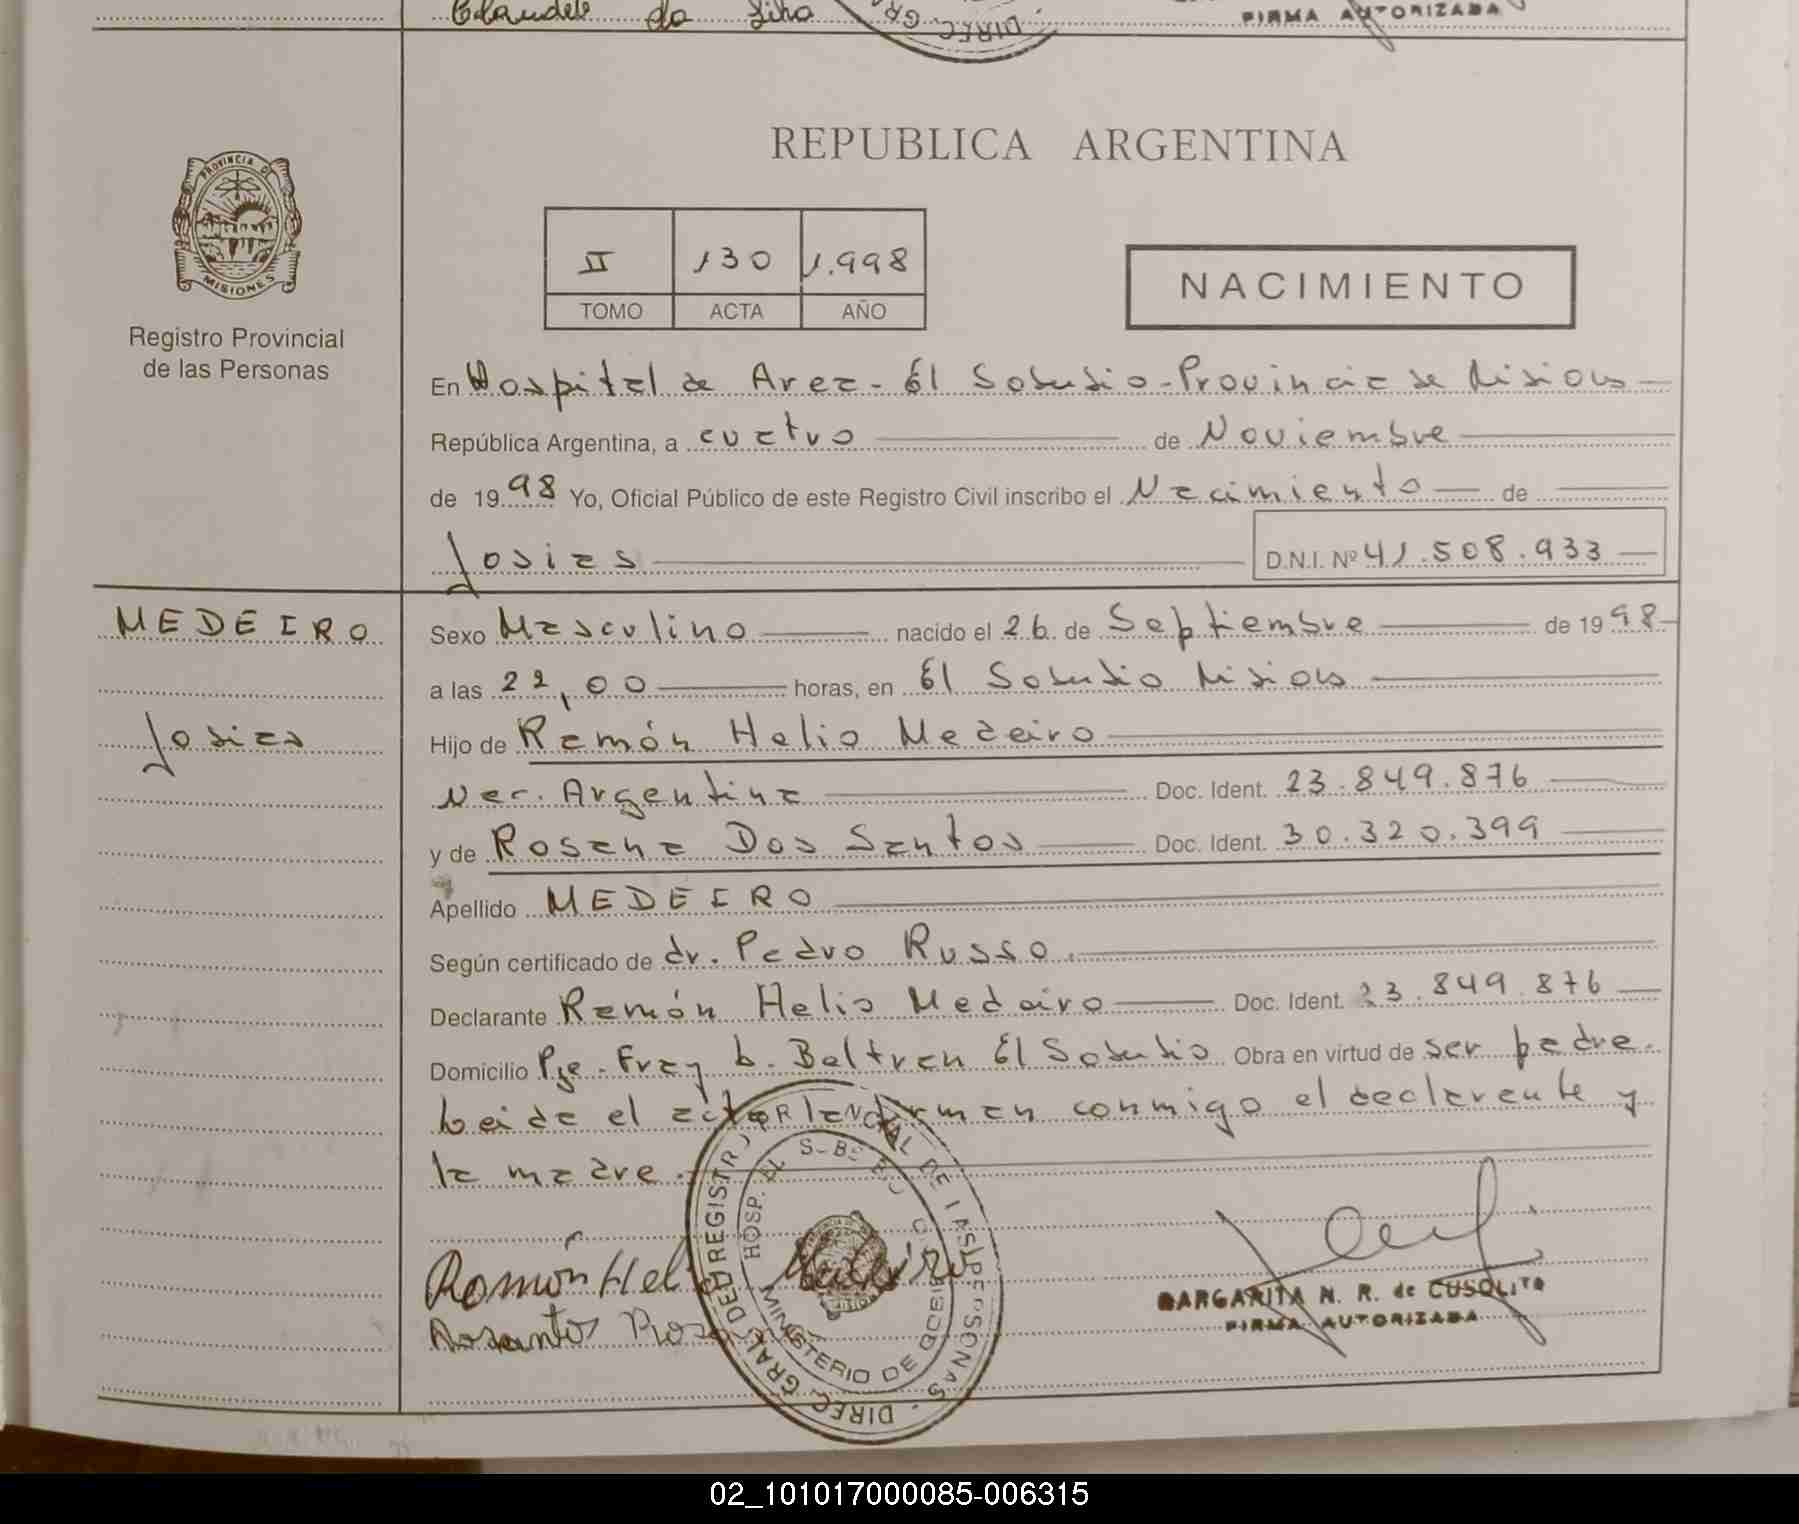 FIRMA AUTORIZADA
REPUBLICA ARGENTINA
PROVINCIA DE
MISIONES
Registro Provincial
de las Personas
II 130 1.998
TOMO ACTA AÑO
NACIMIENTO
En Hospital de Area - El Soberbio - Provincia de Misiones
República Argentina, a cuatro de Noviembre
de 1998 Yo, Oficial Público de este Registro Civil inscribo el Nacimiento de
Josias D.N.I. Nº 41.508.933
MEDEIRO
Josias
Sexo Masculino nacido el 26 de Septiembre de 1998
a las 22,00 horas, en El Soberbio Misiones
Hijo de Ramón Helio Medeiro
Nac. Argentina Doc. Ident. 23.849.876
y de Rosana Dos Santos Doc. Ident. 30.320.399
Apellido MEDEIRO
Según certificado de dr. Pedro Russo.
Declarante Ramón Helio Medeiro Doc. Ident. 23.849.876
Domicilio Pje. Fray L. Beltran El Soberbio Obra en virtud de ser padre.
Leida el acta la firman conmigo el declarante y
la madre.
Ramón Heli Medeiro
Dosantos Rosana
MARGARITA N. R. de CUSOLITO
FIRMA AUTORIZADA
02_101017000085-006315